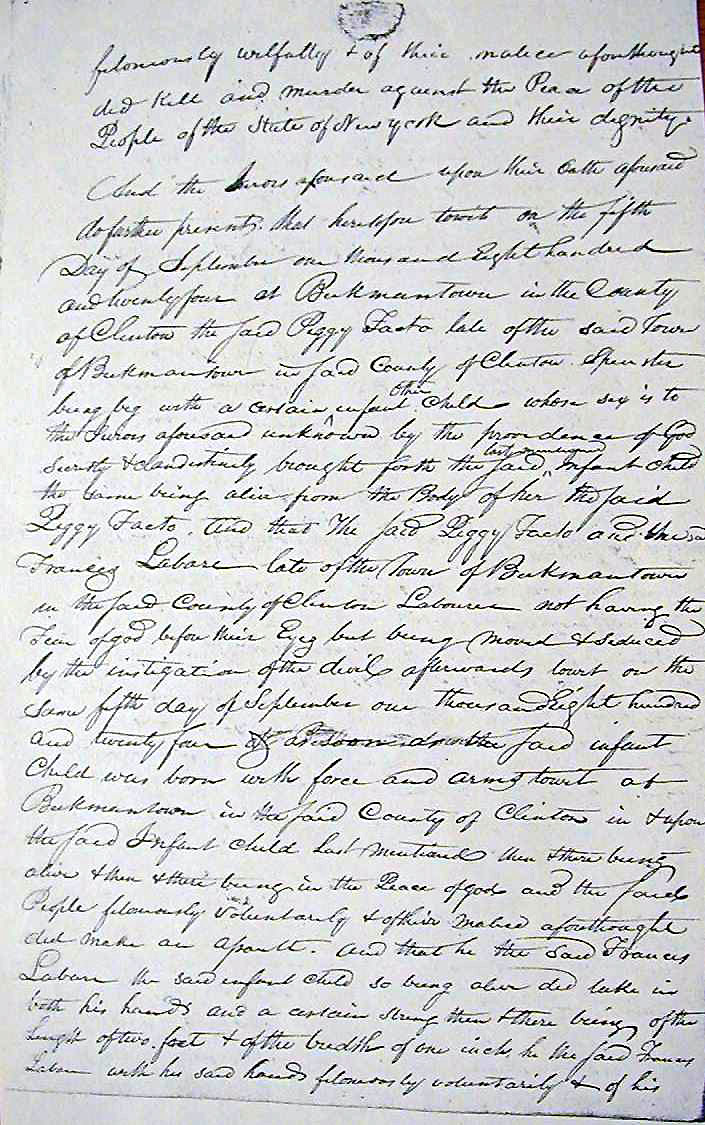 feloniously wilfully & of their malice aforethought
did kill and murder against the Peace of the
People of the State of New york and their dignity.
And the Jurors aforesaid upon their Oath aforesaid
do further present. that heretofore towit on the fifth
Day of September one thousand Eight hundred
and twenty four at Beekmantown in the County
of Clinton the said Peggy Facto late of the said Town
of Beekmantown in said County of Clinton Spinster
being big with a certain infant other Child whose sex is to
the Jurors aforesaid unknown by the providence of God
secretly & clandestinely brought forth the said last mentioned Infant child
the same being alive from the Body of her the said
Peggy Facto. And that The said Peggy Facto and
Francis Labare late of the Town of Beekmantown
in the said County of Clinton Labourer not having the
Fear of god before their Eyes but being moved & seduced
by the instigation of the devil afterwards towit on the
same fifth day of September one thousand Eight hundred
and twenty four as soon as the said infant
Child was born with force and arms towit at
Beekmantown in the said County of Clinton in & upon
the said Infant Child last mentioned then & there being
alive & then & there being in the Peace of god and the said
People feloniously voluntarily & of their malice aforethought
did make an assault. and that he the said Francis
Labare the said infant child so being alive did take in
both his hands and a certain string then & there being of the
length of two feet & of the bredth of one inch. he the said Francis
Labare with his said hands feloniously voluntarily & of his